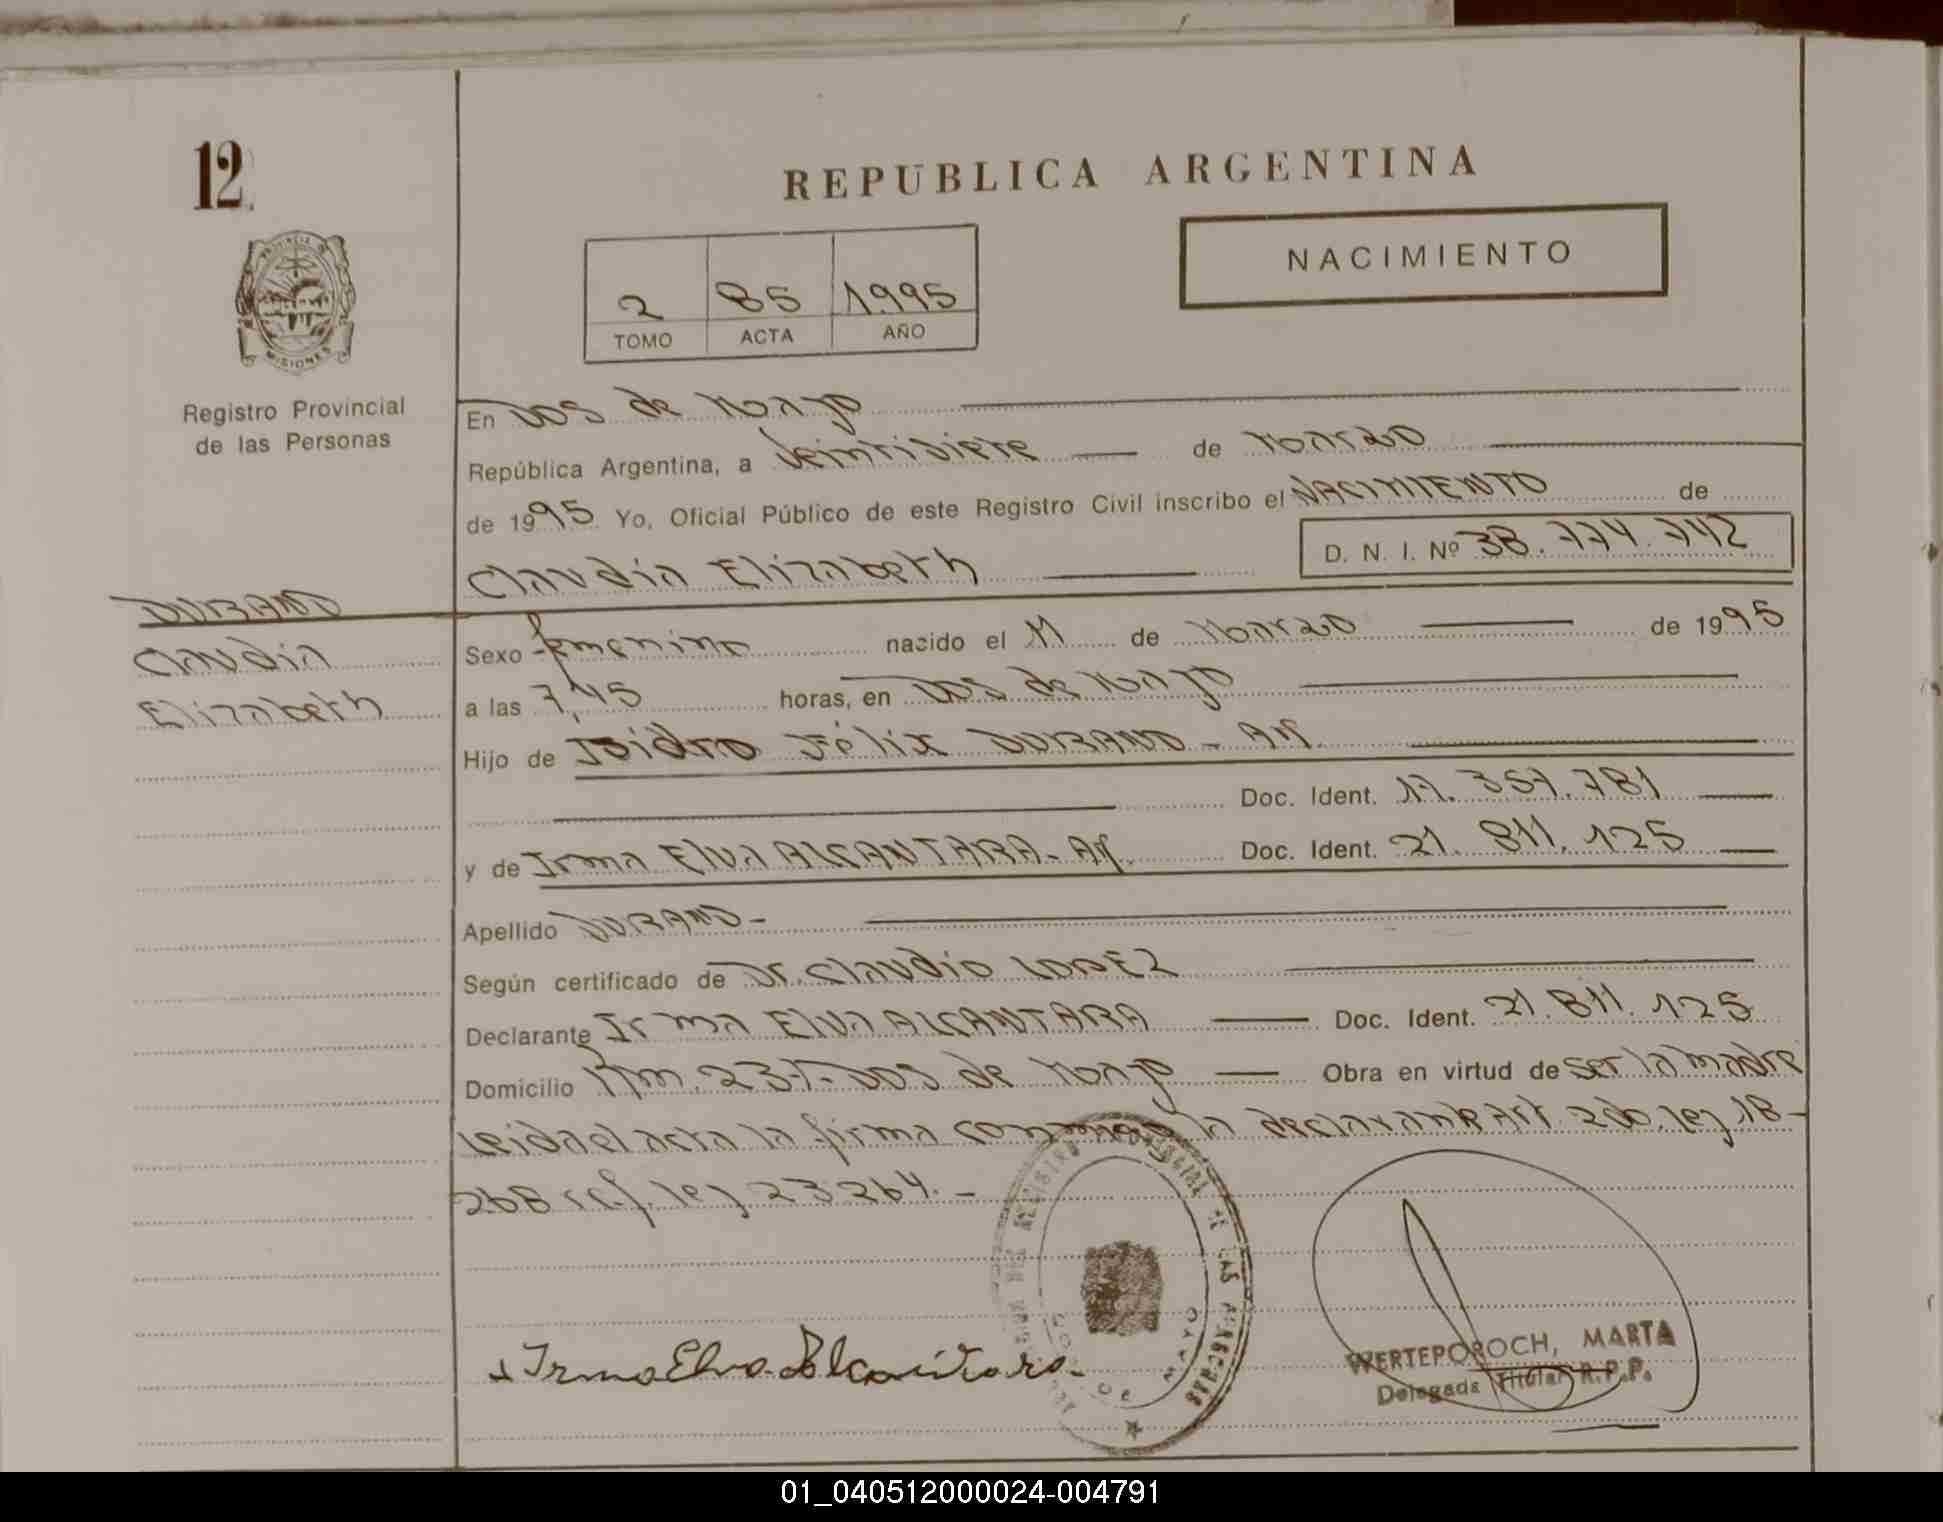 12
REPUBLICA ARGENTINA
NACIMIENTO
2 85 1.995
TOMO ACTA AÑO
PROVINCIA DE
MISIONES
Registro Provincial
de las Personas
En Dos de Mayo
República Argentina, a veintisiete de Marzo
de 1995 Yo, Oficial Público de este Registro Civil inscribo el NACIMIENTO de
Claudia Elizabeth D. N. I. Nº 38.774.742
DURAND
Claudia
Elizabeth
Sexo femenino nacido el 11 de Marzo de 1995
a las 7,45 horas, en Dos de Mayo
Hijo de Isidro Félix DURAND - Ar.
Doc. Ident. 17.357.781
y de Irma Elva ALCANTARA - Ar. Doc. Ident. 21.811.125
Apellido DURAND -
Según certificado de Dr. Claudio LOPEZ
Declarante Irma Elva ALCANTARA Doc. Ident. 21.811.125
Domicilio Km. 237. Dos de Mayo Obra en virtud de ser la madre
leida el acta la firma conmigo la declarante Art. 2do. ley 18-
248 ref. ley 23264. -
Irma Elva Alcantara
WERTEPOROCH, MARTA
Delegada Titular R.P.P.
01_040512000024-004791